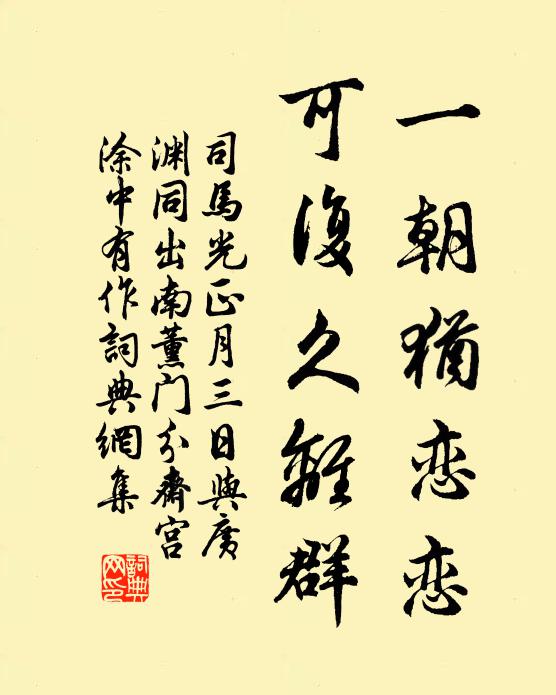 一朝犹恋恋
可復久離群
司馬光正月三日與廣
渊同出南薰门分齋宫
涂中有作詞典網集
詞典网印